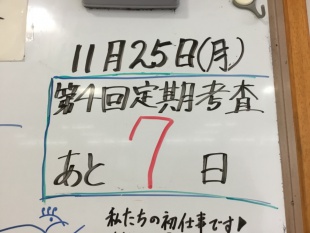 11月25日(月)
第4回定期考査
あと7日
私たちの初仕事です♪